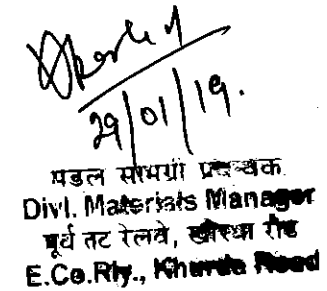 29/01/19.
मंडल सामग्री प्रबन्धक
Divl. Materials Manager
पूर्व तट रेलवे, खोरधा रोड
E.Co.Rly., Khurda Road